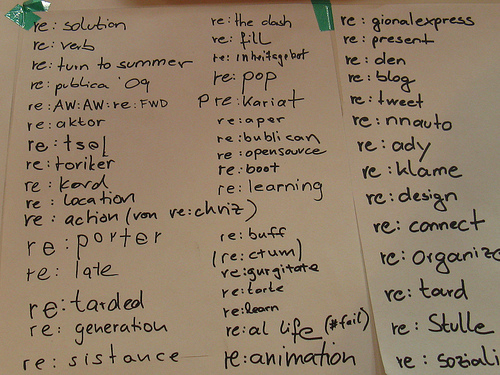 re: solution
re: verb
re: turn to summer
re: publica '09
re: AW: AW: re: FWD
re: aktor
re: tsel
re: toriker
re: kord
re: location
re: action (von re:chriz)
re: porter
re: late
re: tarded
re: generation
re: sistance
re: the dash
re: fill
re: inheritagebot
re: pop
p re: kariat
re: aper
re: bublican
re: opensource
re: boot
re: learning
re: buff
(re: ctum)
re: gurgitate
re: torte
re: learn
re: al life (#fail)
re: animation
re: gionalexpress
re: present
re: den
re: blog
re: tweet
re: nnauto
re: ady
re: klame
re: design
re: connect
re: organize
re: tard
re: Stulle
re: soziali